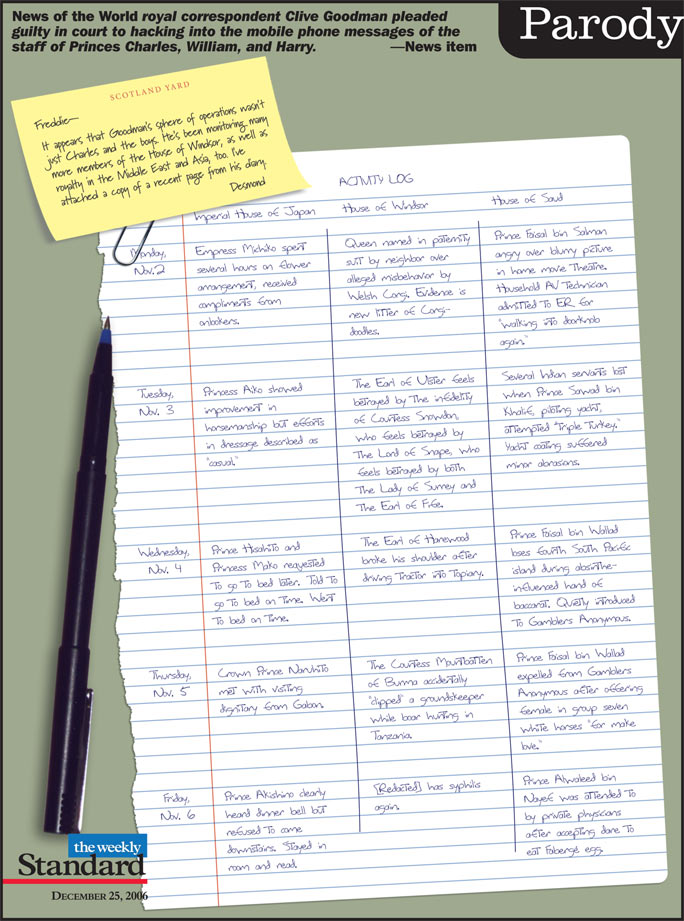 News of the World royal correspondent Clive Goodman pleaded
guilty in court to hacking into the mobile phone messages of the
staff of Princes Charles, William, and Harry. —News item
Parody
SCOTLAND YARD
Freddie—
It appears that Goodman's sphere of operations wasn't
just Charles and the boys. He's been monitoring many
more members of the House of Windsor, as well as
royalty in the Middle East and Asia, too. I've
attached a copy of a recent page from his diary.
Desmond
ACTIVITY LOG
Imperial House of Japan
House of Windsor
House of Saud
Monday,
Nov. 2
Empress Michiko spent
several hours on flower
arrangement, received
compliments from
onlookers.
Queen named in paternity
suit by neighbor over
alleged misbehavior by
Welsh Corgi. Evidence is
new litter of Corgi-
doodles.
Prince Faisal bin Salman
angry over blurry picture
in home movie theatre.
Household AV Technician
admitted to ER for
"walking into doorknob
again."
Tuesday,
Nov. 3
Princess Aiko showed
improvement in
horsemanship but efforts
in dressage described as
"casual."
The Earl of Ulster feels
betrayed by the infidelity
of Countess Snowdon,
who feels betrayed by
the Lord of Snape, who
feels betrayed by both
the Lady of Surrey and
the Earl of Fife.
Several Indian servants lost
when Prince Sawad bin
Khalif, piloting yacht,
attempted "Triple Turkey."
Yacht coating suffered
minor abrasions.
Wednesday,
Nov. 4
Prince Hisahito and
Princess Mako requested
to go to bed later. Told to
go to bed on time. Went
to bed on time.
The Earl of Harewood
broke his shoulder after
driving tractor into topiary.
Prince Faisal bin Wallad
loses fourth South Pacific
island during absinthe-
influenced hand of
baccarat. Quietly introduced
to Gamblers Anonymous.
Thursday,
Nov. 5
Crown Prince Naruhito
met with visiting
dignitary from Gabon.
The Countess Mountbatten
of Burma accidentally
"clipped" a groundskeeper
while boar hunting in
Tanzania.
Prince Faisal bin Wallad
expelled from Gamblers
Anonymous after offering
female in group seven
white horses "for make
love."
Friday,
Nov. 6
Prince Akishino clearly
heard dinner bell but
refused to come
downstairs. Stayed in
room and read.
[Redacted] has syphilis
again.
Prince Alwaleed bin
Nayef was attended to
by private physicians
after accepting dare to
eat Fabergé egg.
the weekly
Standard
DECEMBER 25, 2006